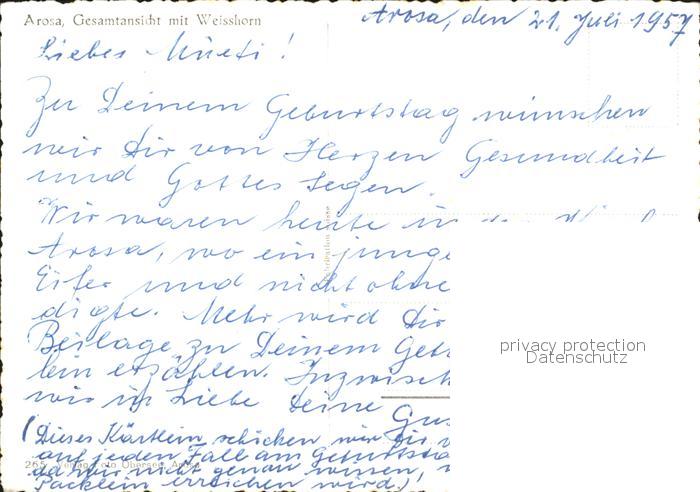 Arosa, Gesamtansicht mit Weisshorn
Arosa, den 21. Juli 1957
Liebes Müeti!
Zu Deinem Geburtstag wünschen
wir Dir von Herzen Gesundheit
und Gottes Segen.
Wir waren heute in
Arosa, wo ein junge
Eifer und nicht ohne
digte. Mehr wird Dir
Beilage zu Deinem Geb
lein erzählen. Inzwisch
wir in Liebe Deine
Gus
(Dieses Kärtlein schicken wir Dir
auf jeden Fall am Geburtsta
da wir nicht genau wissen,
Päcklein erreichen wird.)
Verlag Foto Obersee, Arosa
privacy protection
Datenschutz